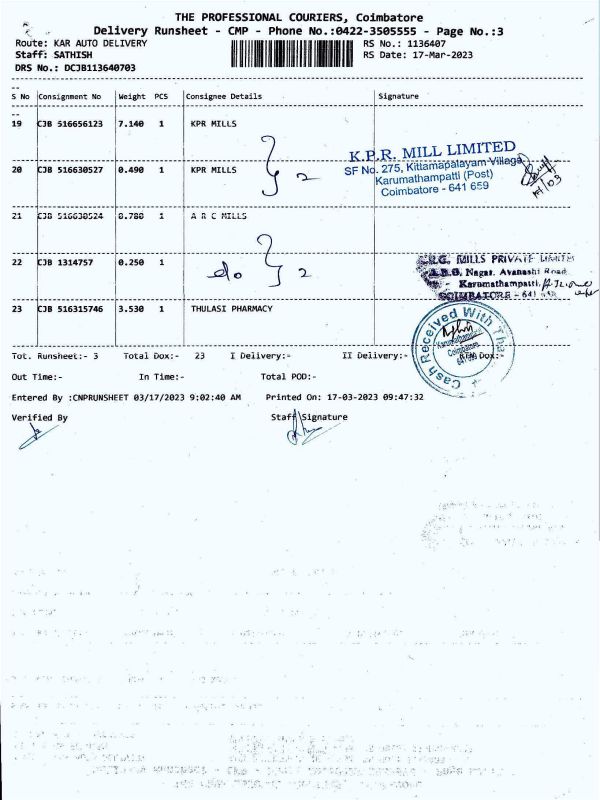 THE PROFESSIONAL COURIERS, Coimbatore
Delivery Runsheet - CMP - Phone No.:0422-3505555 - Page No.:3
Route: KAR AUTO DELIVERY RS No.: 1136407
Staff: SATHISH RS Date: 17-Mar-2023
DRS No.: DCJB113640703
S No Consignment No Weight PCS Consignee Details Signature
19 CJB 516656123 7.140 1 KPR MILLS
K.P.R. MILL LIMITED
SF No. 275, Kittampalayam Village
Karumathampatti (Post)
Coimbatore - 641 659
20 CJB 516630527 0.490 1 KPR MILLS 2
21 CJB 516630524 0.780 1 A R C MILLS
22 CJB 1314757 0.250 1 do 2
MILLS PRIVATE LIMITED
Nagar, Avanashi Road
Karumathampatti,
COIMBATORE - 641
23 CJB 516315746 3.530 1 THULASI PHARMACY
Cash Received With Tha
Karumathampatti
Coimbatore
Tot. Runsheet:- 3 Total Dox:- 23 I Delivery:- II Delivery:- Dox:-
Out Time:- In Time:- Total POD:-
Entered By :CNPRUNSHEET 03/17/2023 9:02:40 AM Printed On: 17-03-2023 09:47:32
Verified By Staff Signature